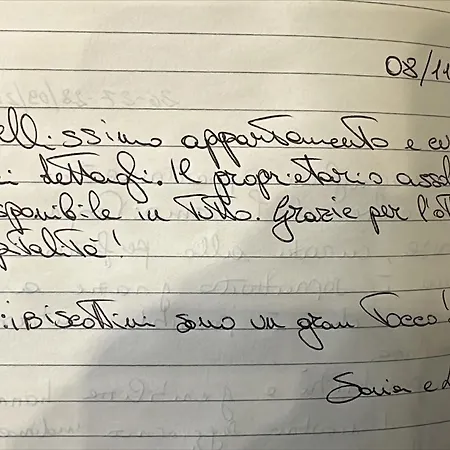 08/11
ellissimo appartamento e cu
i dettagli. Il proprietario assol
sponibile in tutto. Grazie per l'ot
pitalità!
: i Biscottini sono un gran Tocco!
Sonia e